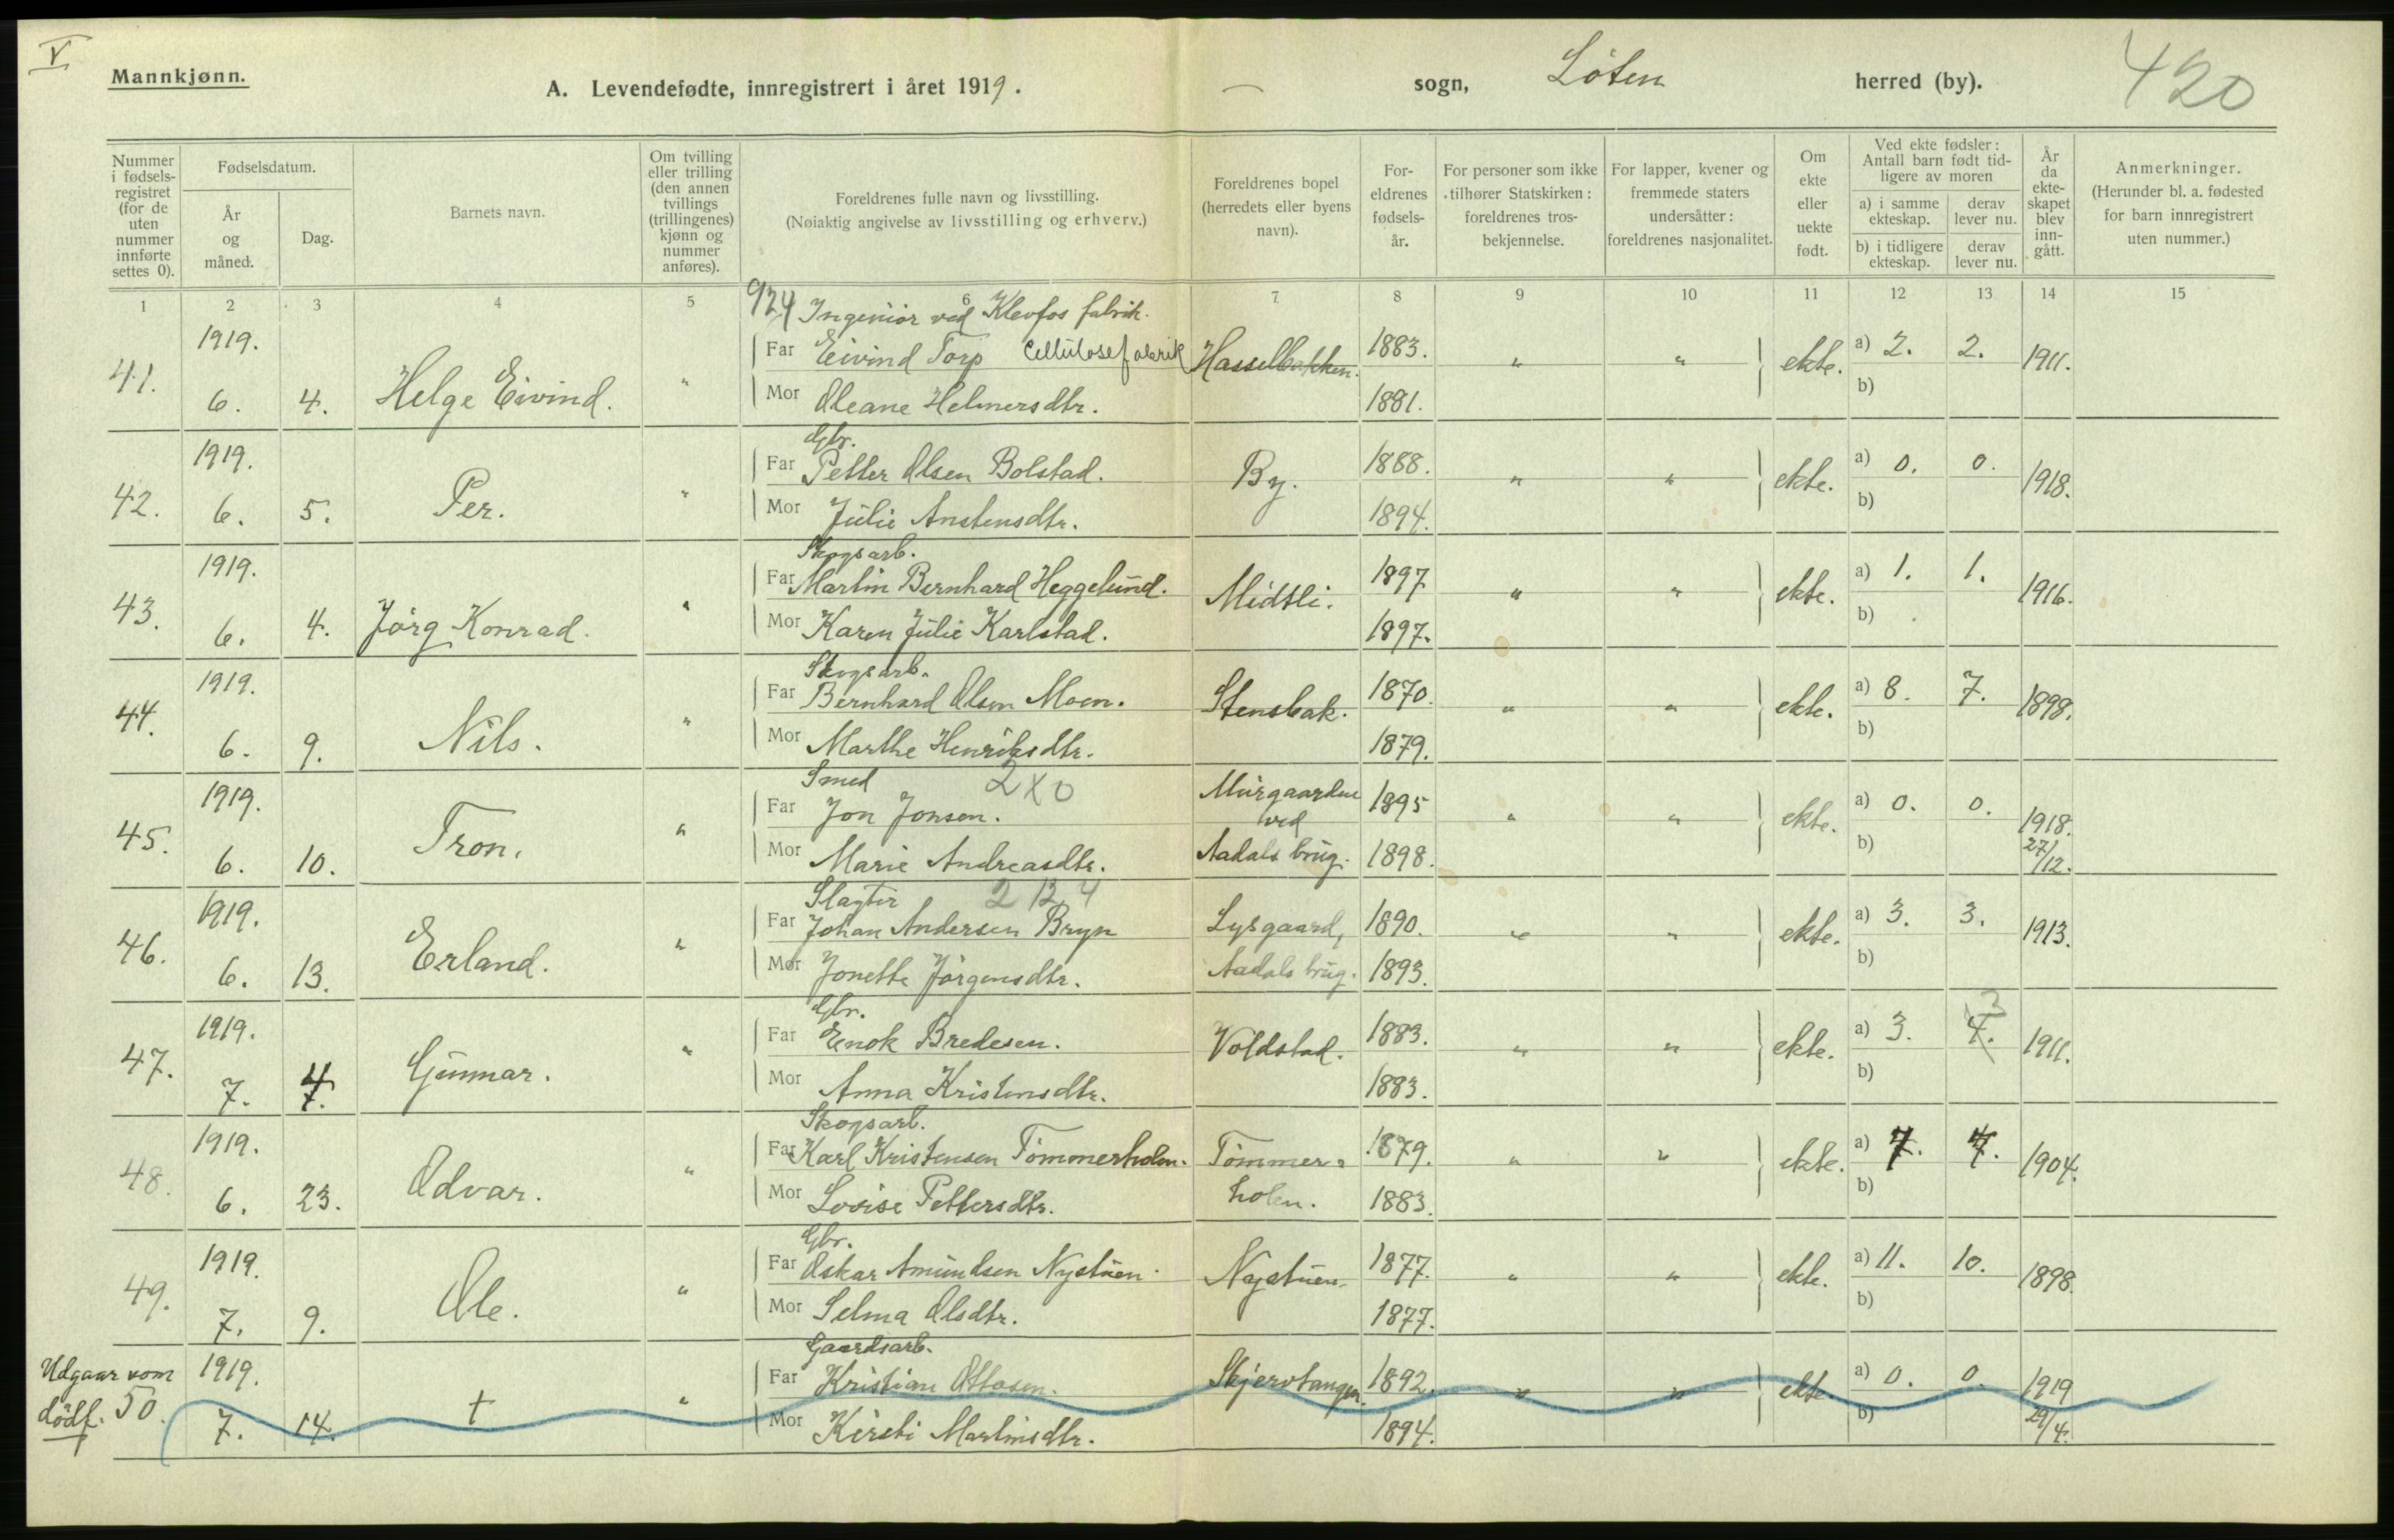 V
Mannkjønn.
A. Levendefødte, innregistrert i året 1919.
— sogn, Löten herred (by).
420
Nummer i fødsels-registret (for de uten nummer innførte settes 0).
Fødselsdatum.
År og måned.
Dag.
Barnets navn.
Om tvilling eller trilling (den annen tvillings (trillingenes) kjønn og nummer anføres).
Foreldrenes fulle navn og livsstilling.
(Nøiaktig angivelse av livsstilling og erhverv.)
Foreldrenes bopel (herredets eller byens navn).
For-eldrenes fødsels-år.
For personer som ikke tilhører Statskirken: foreldrenes tros-bekjennelse.
For lapper, kvener og fremmede staters undersåtter: foreldrenes nasjonalitet.
Om ekte eller uekte født.
Ved ekte fødsler: Antall barn født tid-ligere av moren
a) i samme ekteskap.
derav lever nu.
b) i tidligere ekteskap.
derav lever nu.
År da ekte-skapet blev inn-gått.
Anmerkninger.
(Herunder bl. a. fødested for barn innregistrert uten nummer.)
1 2 3 4 5 6 7 8 9 10 11 12 13 14 15
924 Ingeniör ved Klevfos fabrik.
1919. Far Eivind Torp Cellulosefabrik Hasselbakken. 1883. " " ekte. a) 2. 2. 1911.
41. 6. 4. Helge Eivind. " Mor Oleane Helmersdtr. 1881. b)
Gbr.
1919. Far Petter Olsen Bolstad. By. 1888. " " ekte. a) 0. 0. 1918.
42. 6. 5. Per. " Mor Julie Anstensdtr. 1894. b)
Skogsarb.
1919. Far Martin Bernhard Heggelund. Midtli. 1897 " " ekte. a) 1. 1. 1916.
43. 6. 4. Jörg Konrad. " Mor Karen Julie Karlstad. 1897. b)
Skogsarb.
1919. Far Bernhard Olsen Moen. Stensbak. 1870. " " ekte. a) 8. 7. 1898.
44. 6. 9. Nils. " Mor Marthe Henriksdtr. 1879. b)
Smed 2x0
1919. Far Jon Jonsen. Murgaarden ved 1895 " " ekte. a) 0. 0. 1918.
45. 6. 10. Tron. " Mor Marie Andreasdtr. Aadals brug. 1898. b) 27/12.
Slagter 2 12 4
1919. Far Johan Andersen Bryn Lysgaard, 1890. " " ekte. a) 3. 3. 1913.
46. 6. 13. Erland. " Mor Jonette Jörgensdtr. Aadals brug. 1893. b)
Gbr. 3
1919. Far Enok Bredesen. Voldstad. 1883. " " ekte. a) 3. 4. 1911.
47. 7. 4. Gunnar. " Mor Anna Kristensdtr. 1883. b)
Skogsarb.
1919. Far Karl Kristensen Tömmerholen. Tömmer- 1879. " " ekte. a) 7. 7. 1904.
48. 6. 23. Odvar. " Mor Lovise Pettersdtr. holen. 1883. b)
Gbr.
1919. Far Oskar Amundsen Nystuen. Nystuen. 1877. " " ekte. a) 11. 10. 1898.
49. 7. 9. Ole. " Mor Selma Olsdtr. 1877. b)
Gaardsarb.
Udgaar som 1919. Far Kristian Ottosen. Skjervtangen. 1892. " " ekte. a) 0. 0. 1919
dödf. 50. 7. 14. † " Mor Kirsti Martinsdtr. 1894. b) 29/4.